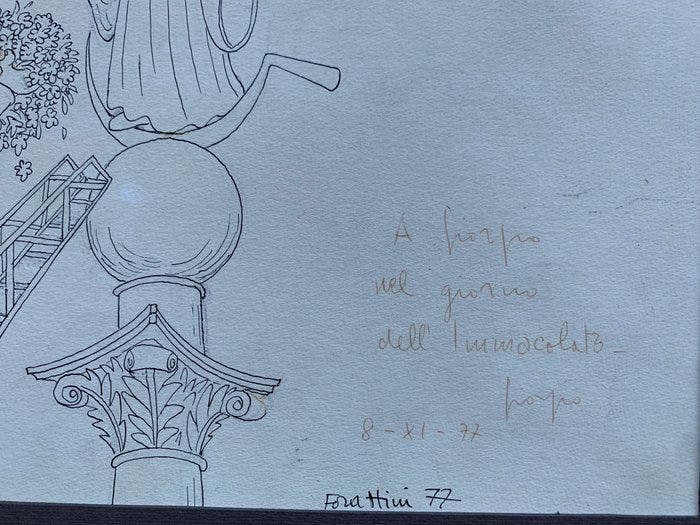 A Giorgio
nel giorno
dell'Immacolata -
Giorgio
8 - XI - 77
Forattini 77